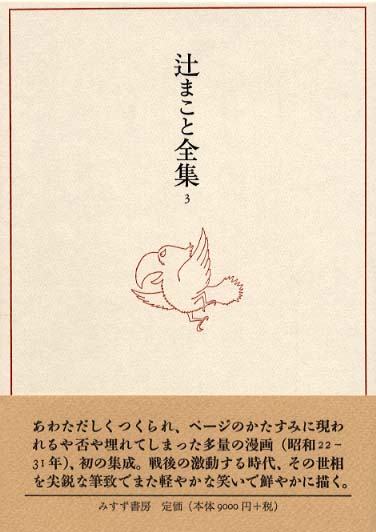 辻まこと全集
3
あわただしくつくられ、ページのかたすみに現わ
れるや否や埋れてしまった多量の漫画（昭和22－
31年）、初の集成。戦後の激動する時代、その世相
を尖鋭な筆致でまた軽やかな笑いで鮮やかに描く。
みすず書房　定価（本体9000円＋税）